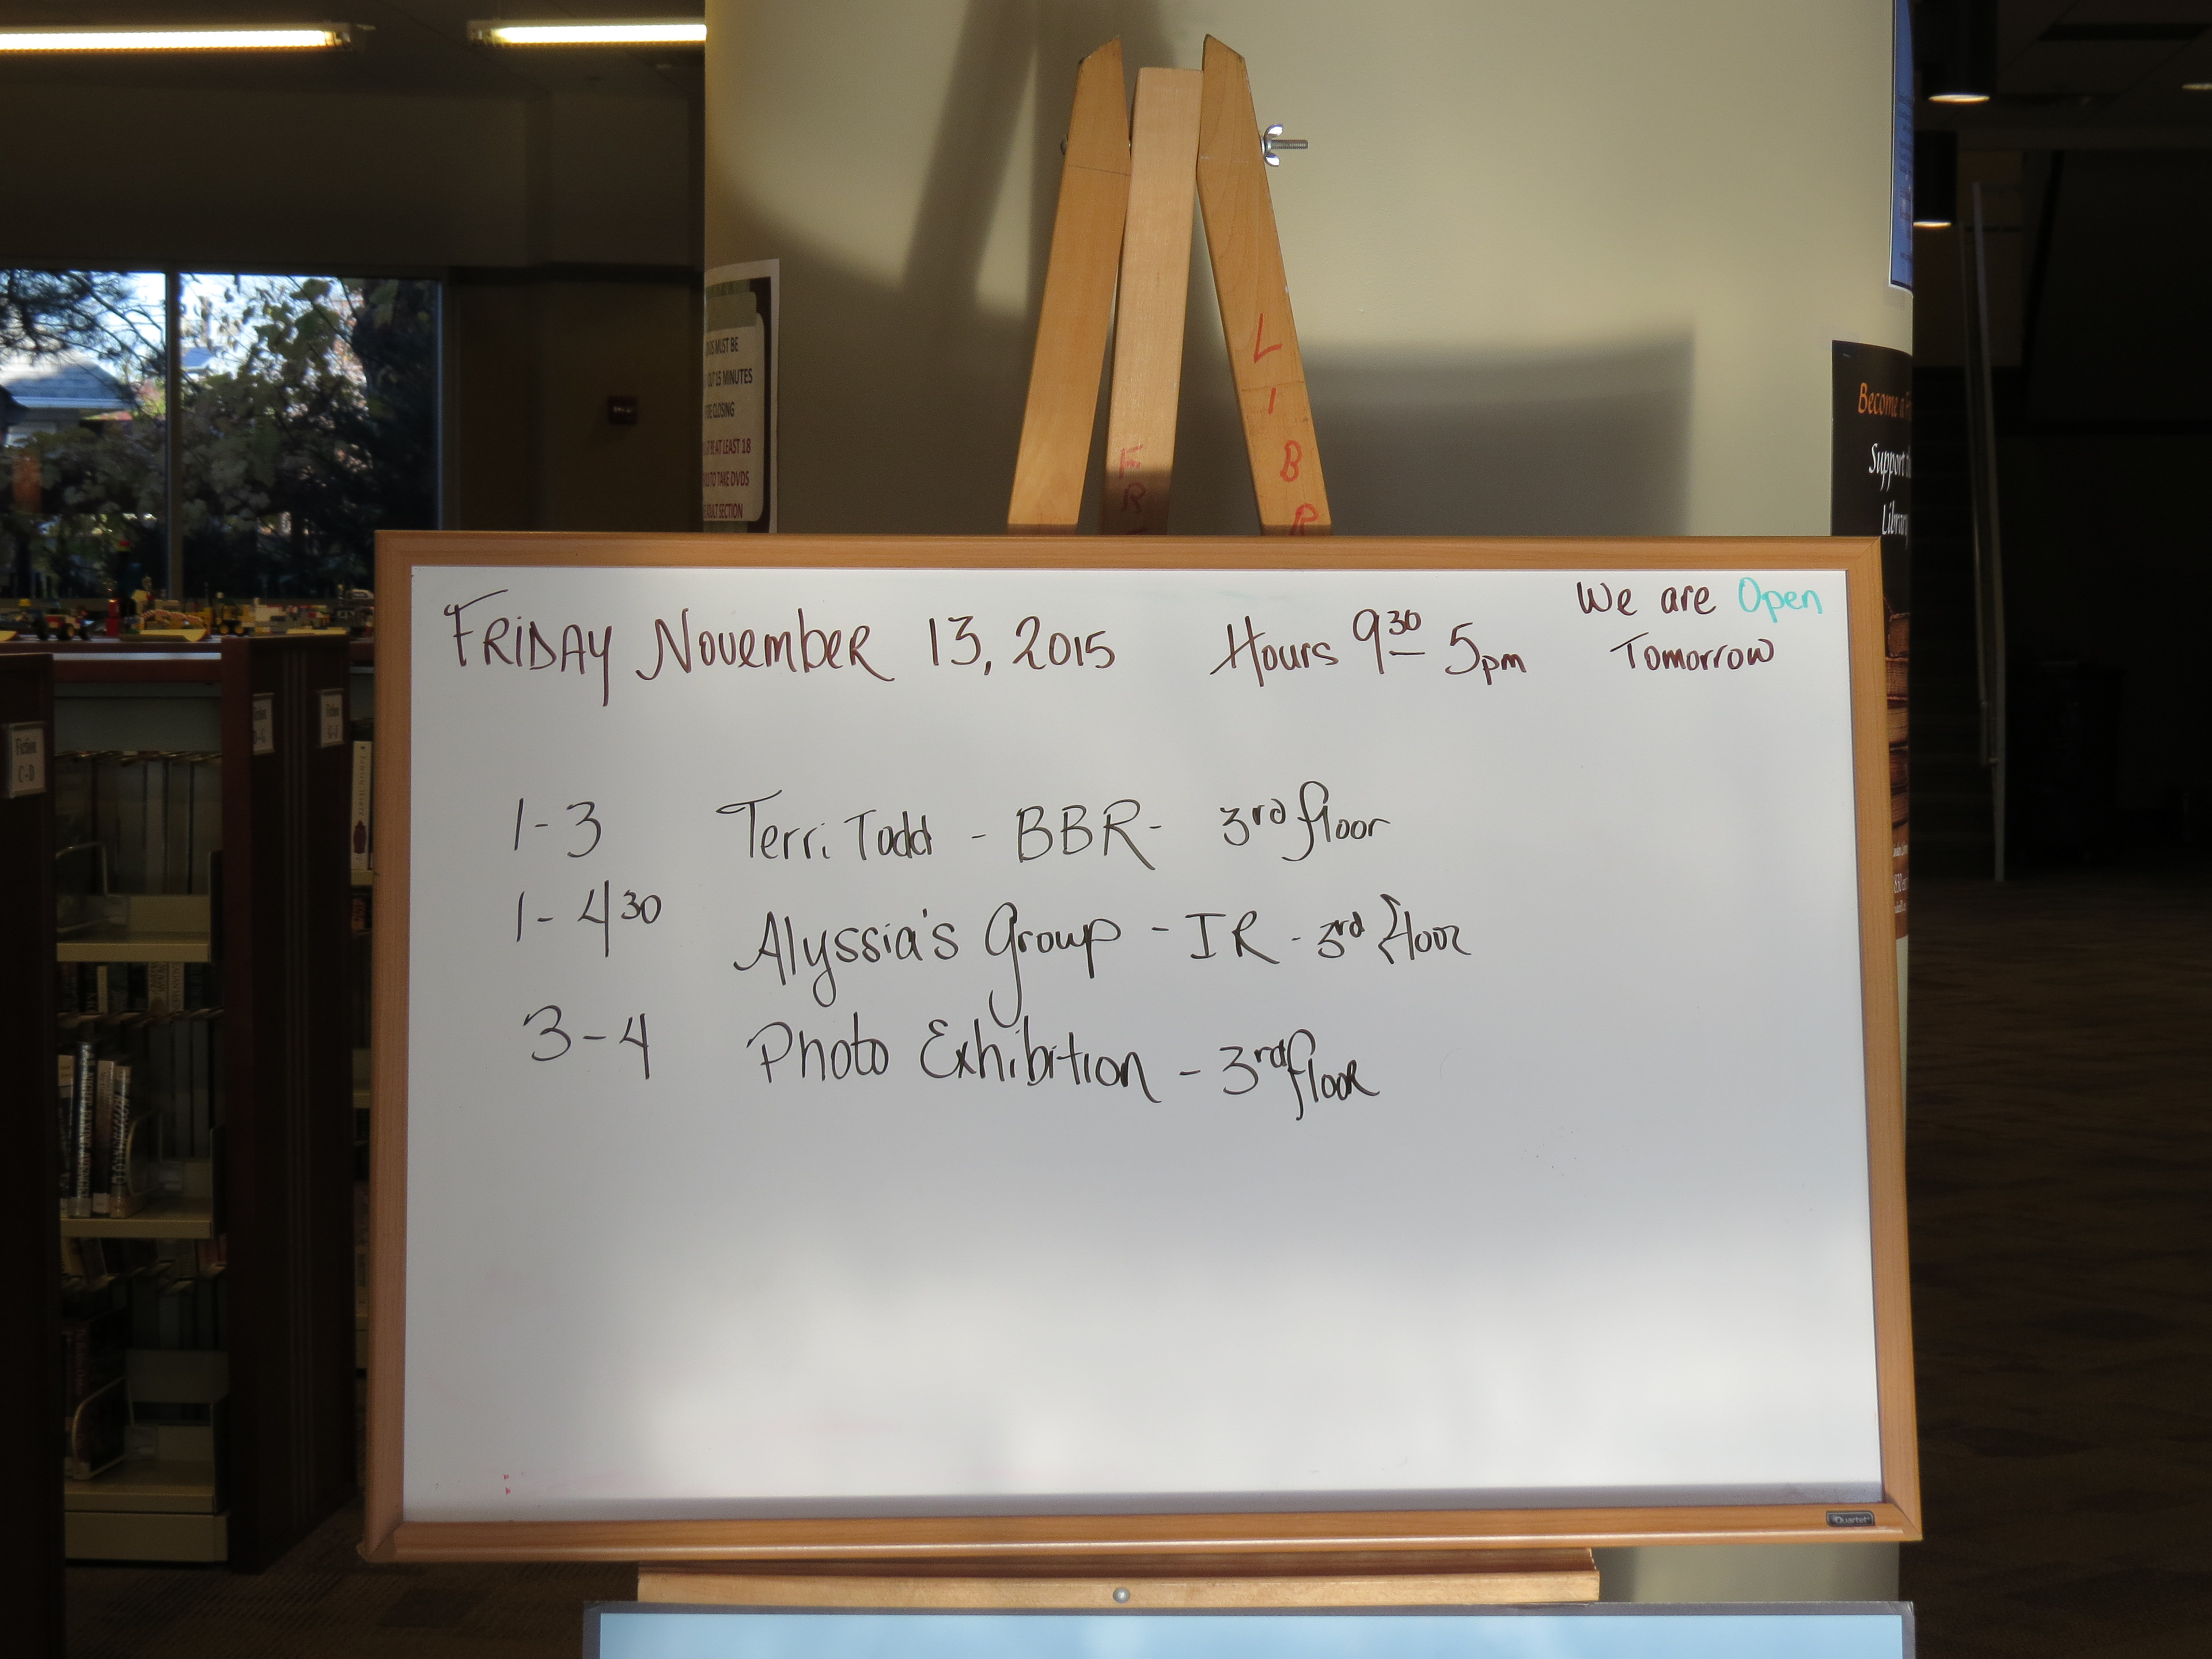 L
I
B
R
F
R
MUST BE
15 MINUTES
CLOSING
AT LEAST 18
TO TAKE DVDS
SECTION
Become a
Support
Library
Fiction
C-D
FRIDAY November 13, 2015 Hours 9 30 - 5pm We are Open
Tomorrow
1-3 Terri Todd - BBR- 3rd floor
1-4 30 Alyssia's Group - IR - 3rd floor
3-4 Photo Exhibition - 3rd floor
Quartet